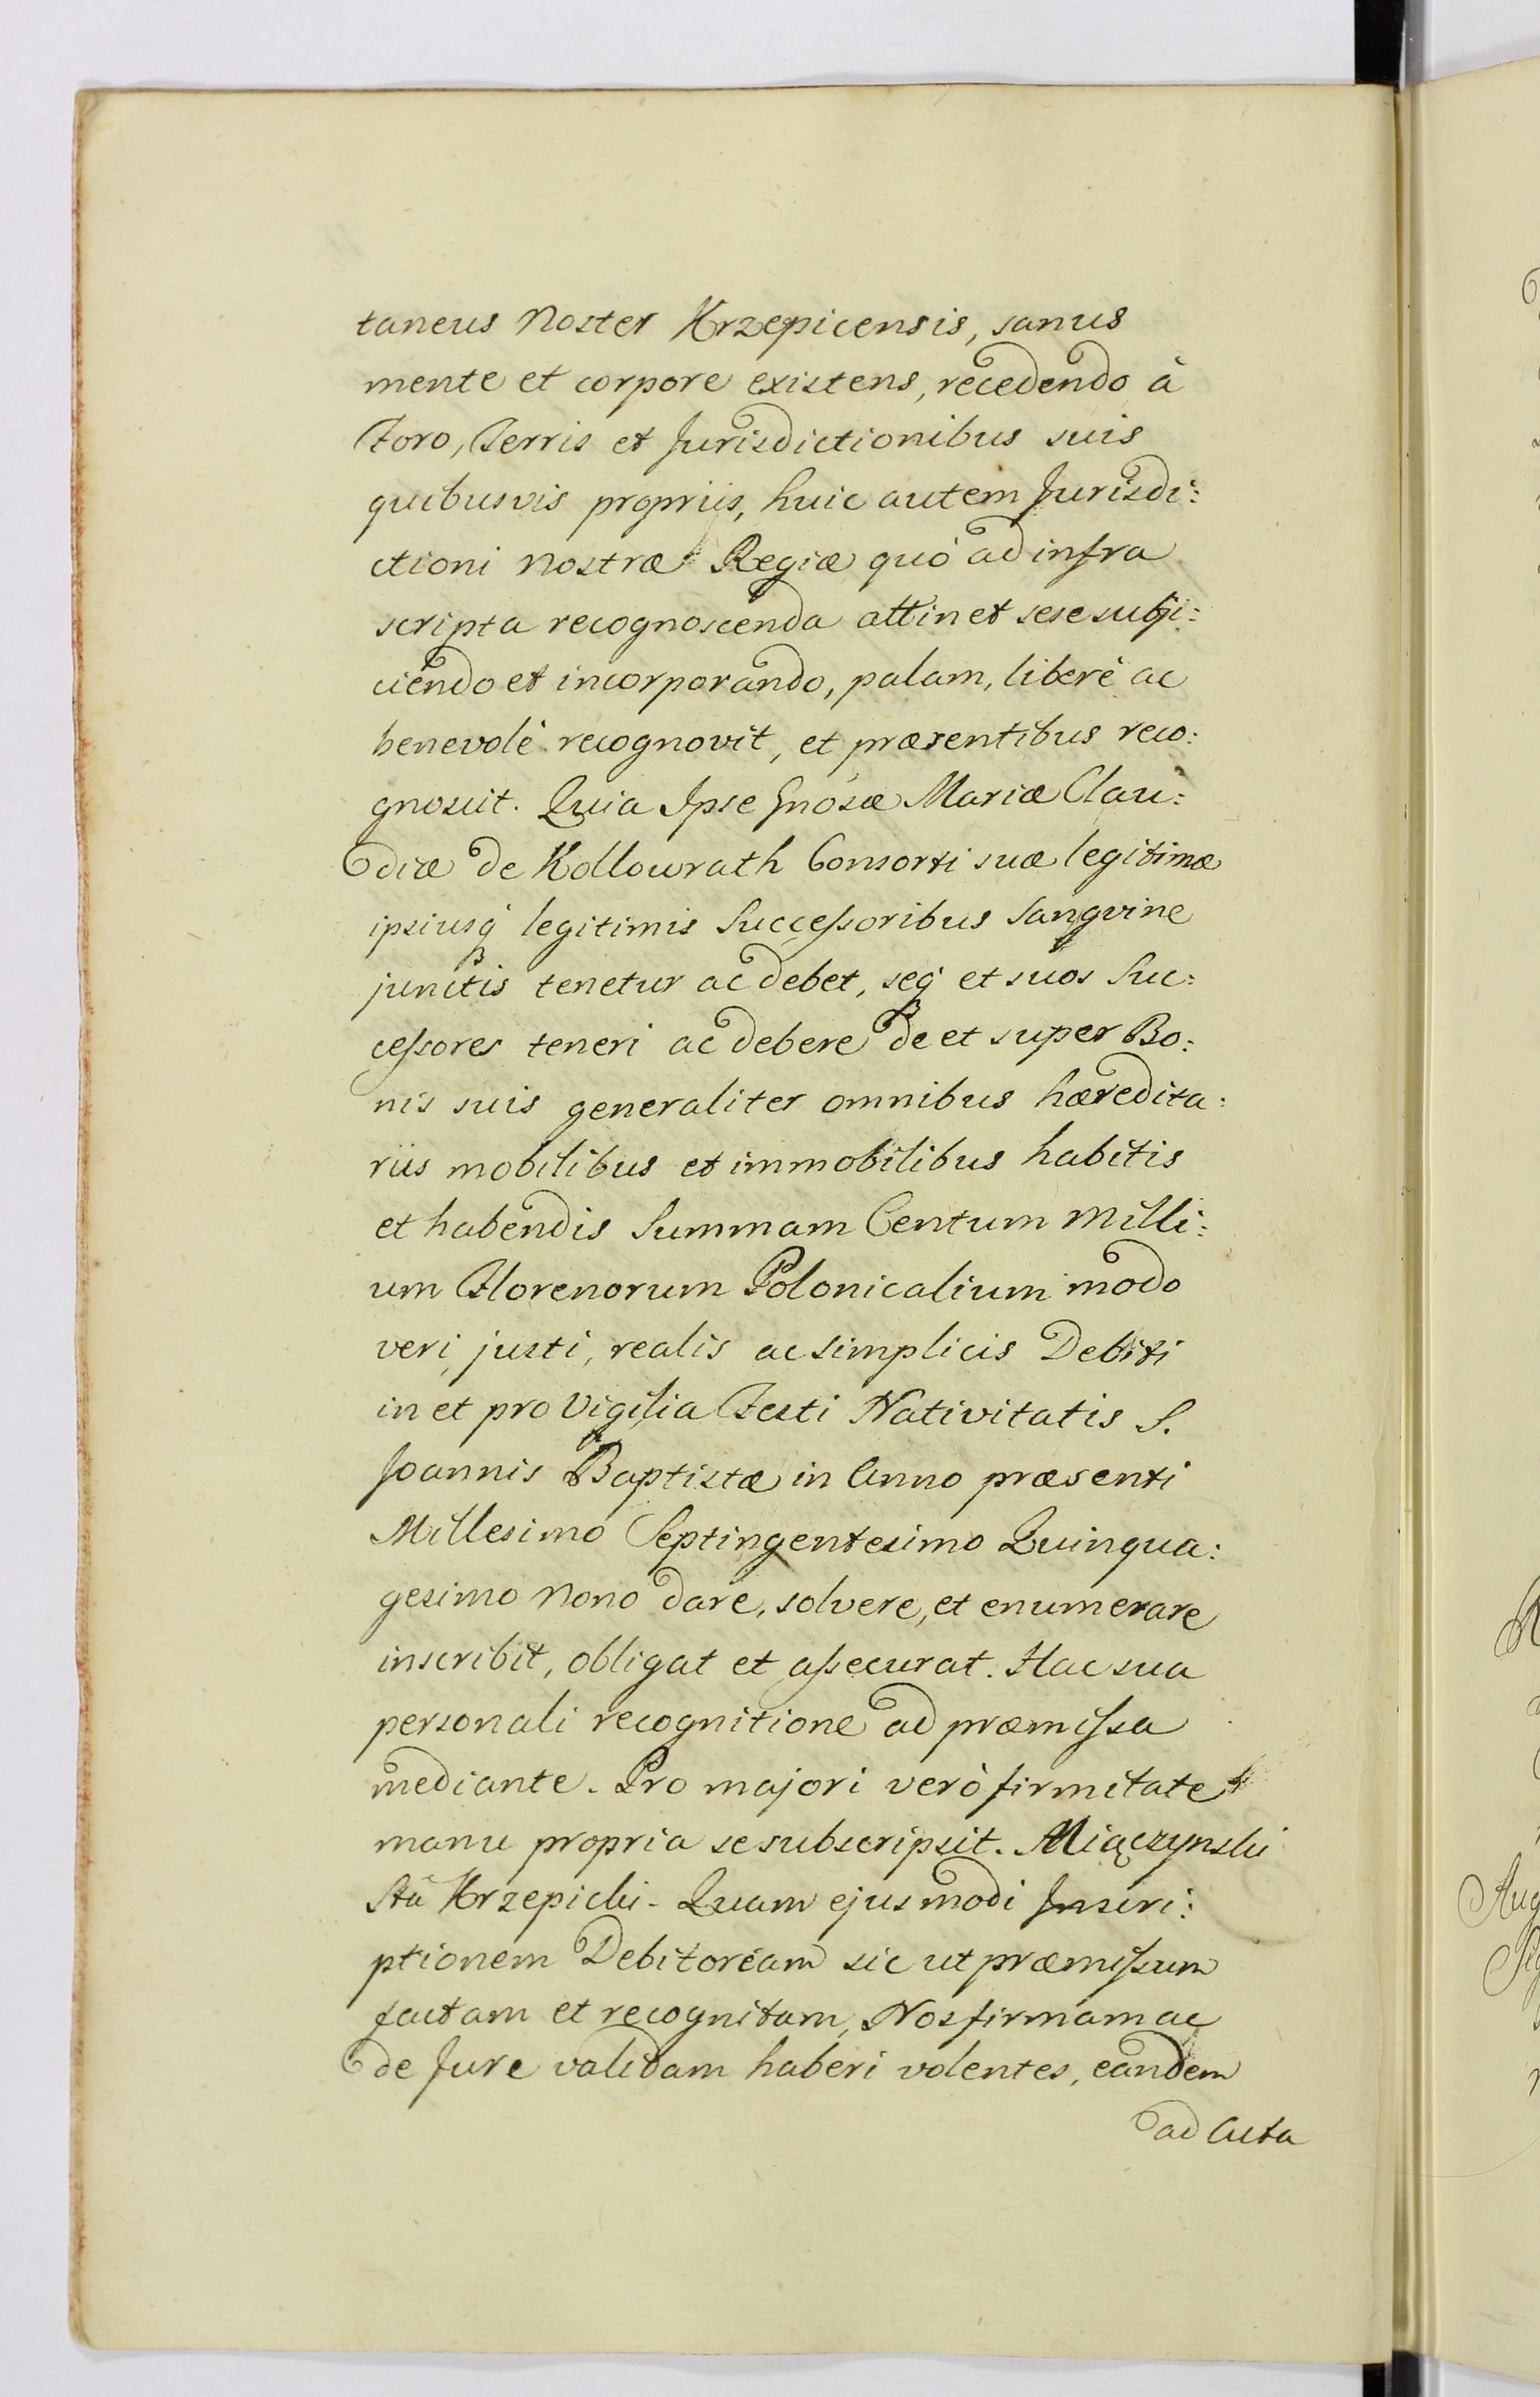 taneus Noster Krzepicensis, sanus
mente et corpore existens, recedendo à
Foro, Terris et Jurisdictionibus suis
quibusvis propriis, huic autem Jurisdi:
ctioni Nostræ Regiæ quò ad infra
scripta recognoscenda attinet sese subji:
ciendo et incorporando, palam, liberè ac
benevolè recognovit, et præsentibus reco:
gnoscit. Quia Ipse Gnosæ Mariæ Clau:
diæ de Kollowrath Consorti suæ legitimæ
ipsiusq́ legitimis Successoribus Sangvine
junctis tenetur ac debet, seq́ et suos Suc:
cessores teneri ac debere de et super Bo:
nis suis generaliter omnibus hæredita:
riis mobilibus et immobilibus habitis
et habendis Summam Centum Milli:
um Florenorum Polonicalium modo
veri, justi, realis ac simplicis Debiti
in et pro Vigilia Festi Nativitatis S.
Joannis Baptistæ in Anno præsenti
Millesimo Septingentesimo Quinqua:
gesimo Nono dare, solvere, et enumerare
inscribit, obligat et assecurat. Hac sua
personali recognitione ad præmissa
mediante. Pro majori verò firmitate
manu propria se subscripsit. Miączynski
Stã Krzepicki - Quam ejusmodi Inscri:
ptionem Debitoream sic ut præmissum
factam et recognitam, Nos firmam ac
de Jure validam haberi volentes, eandem
ad Acta